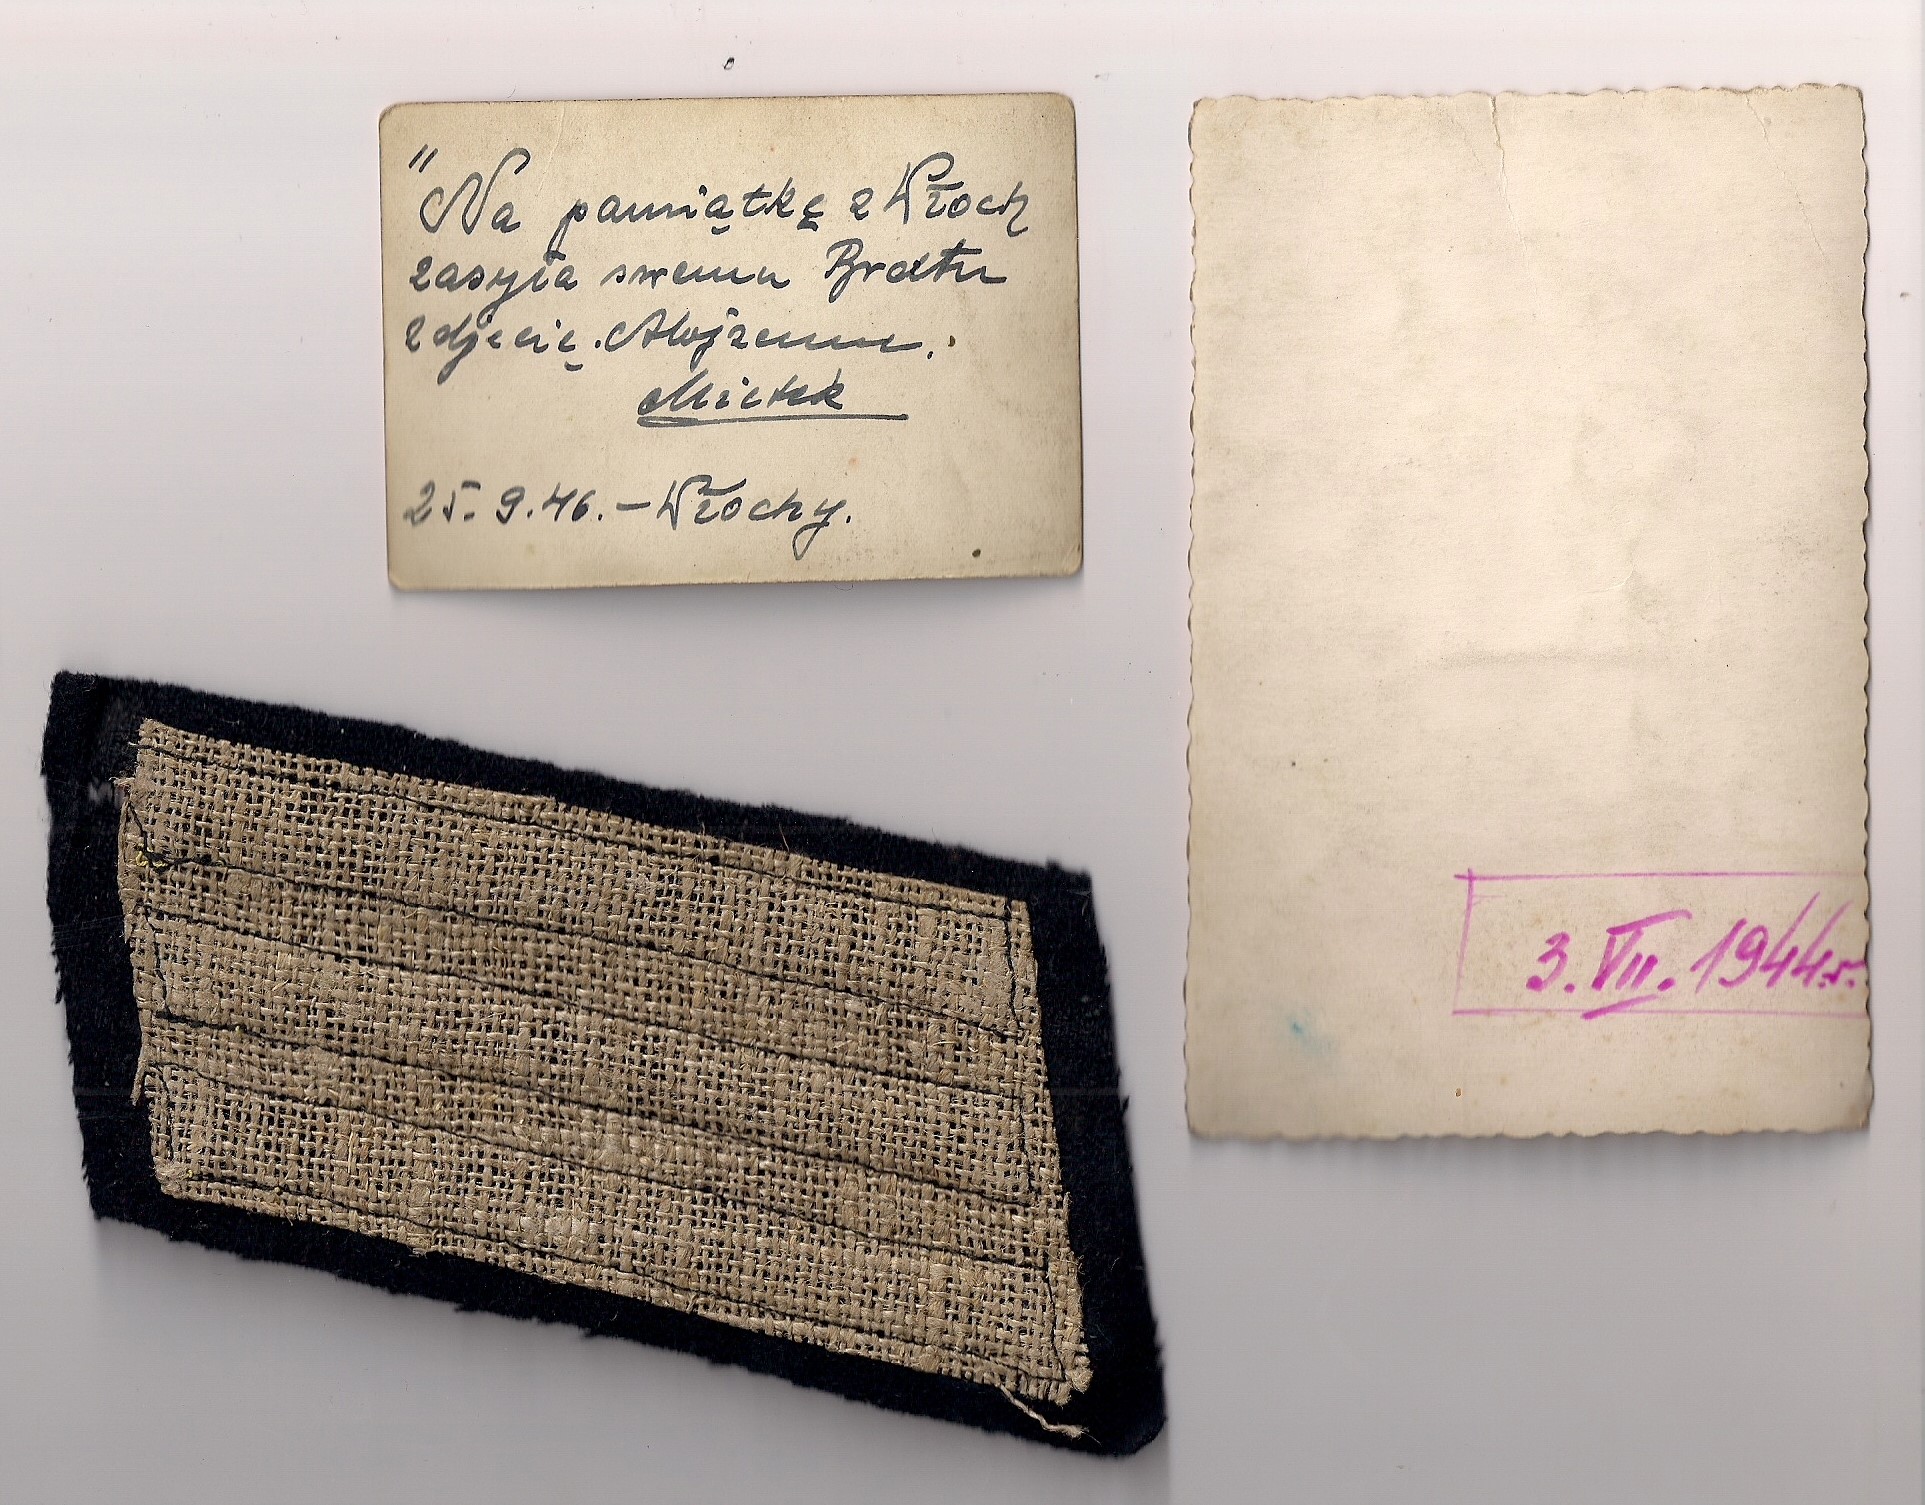 "Na pamiątkę z Włoch
zasyła swemu Bratu
zdjęcię. Alojzemu.
Mietek
25. 9. 46. – Włochy.
3. VII. 1944 r.